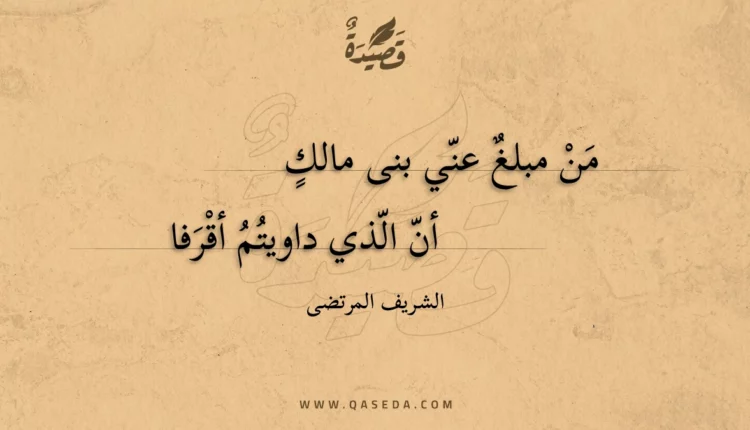 قَصِيْدَةٌ
مَنْ مبلغٌ عنّي بنى مالكٍ
أنّ الّذي داويتُمُ أقْرَفا
الشريف المرتضى
WWW.QASEDA.COM